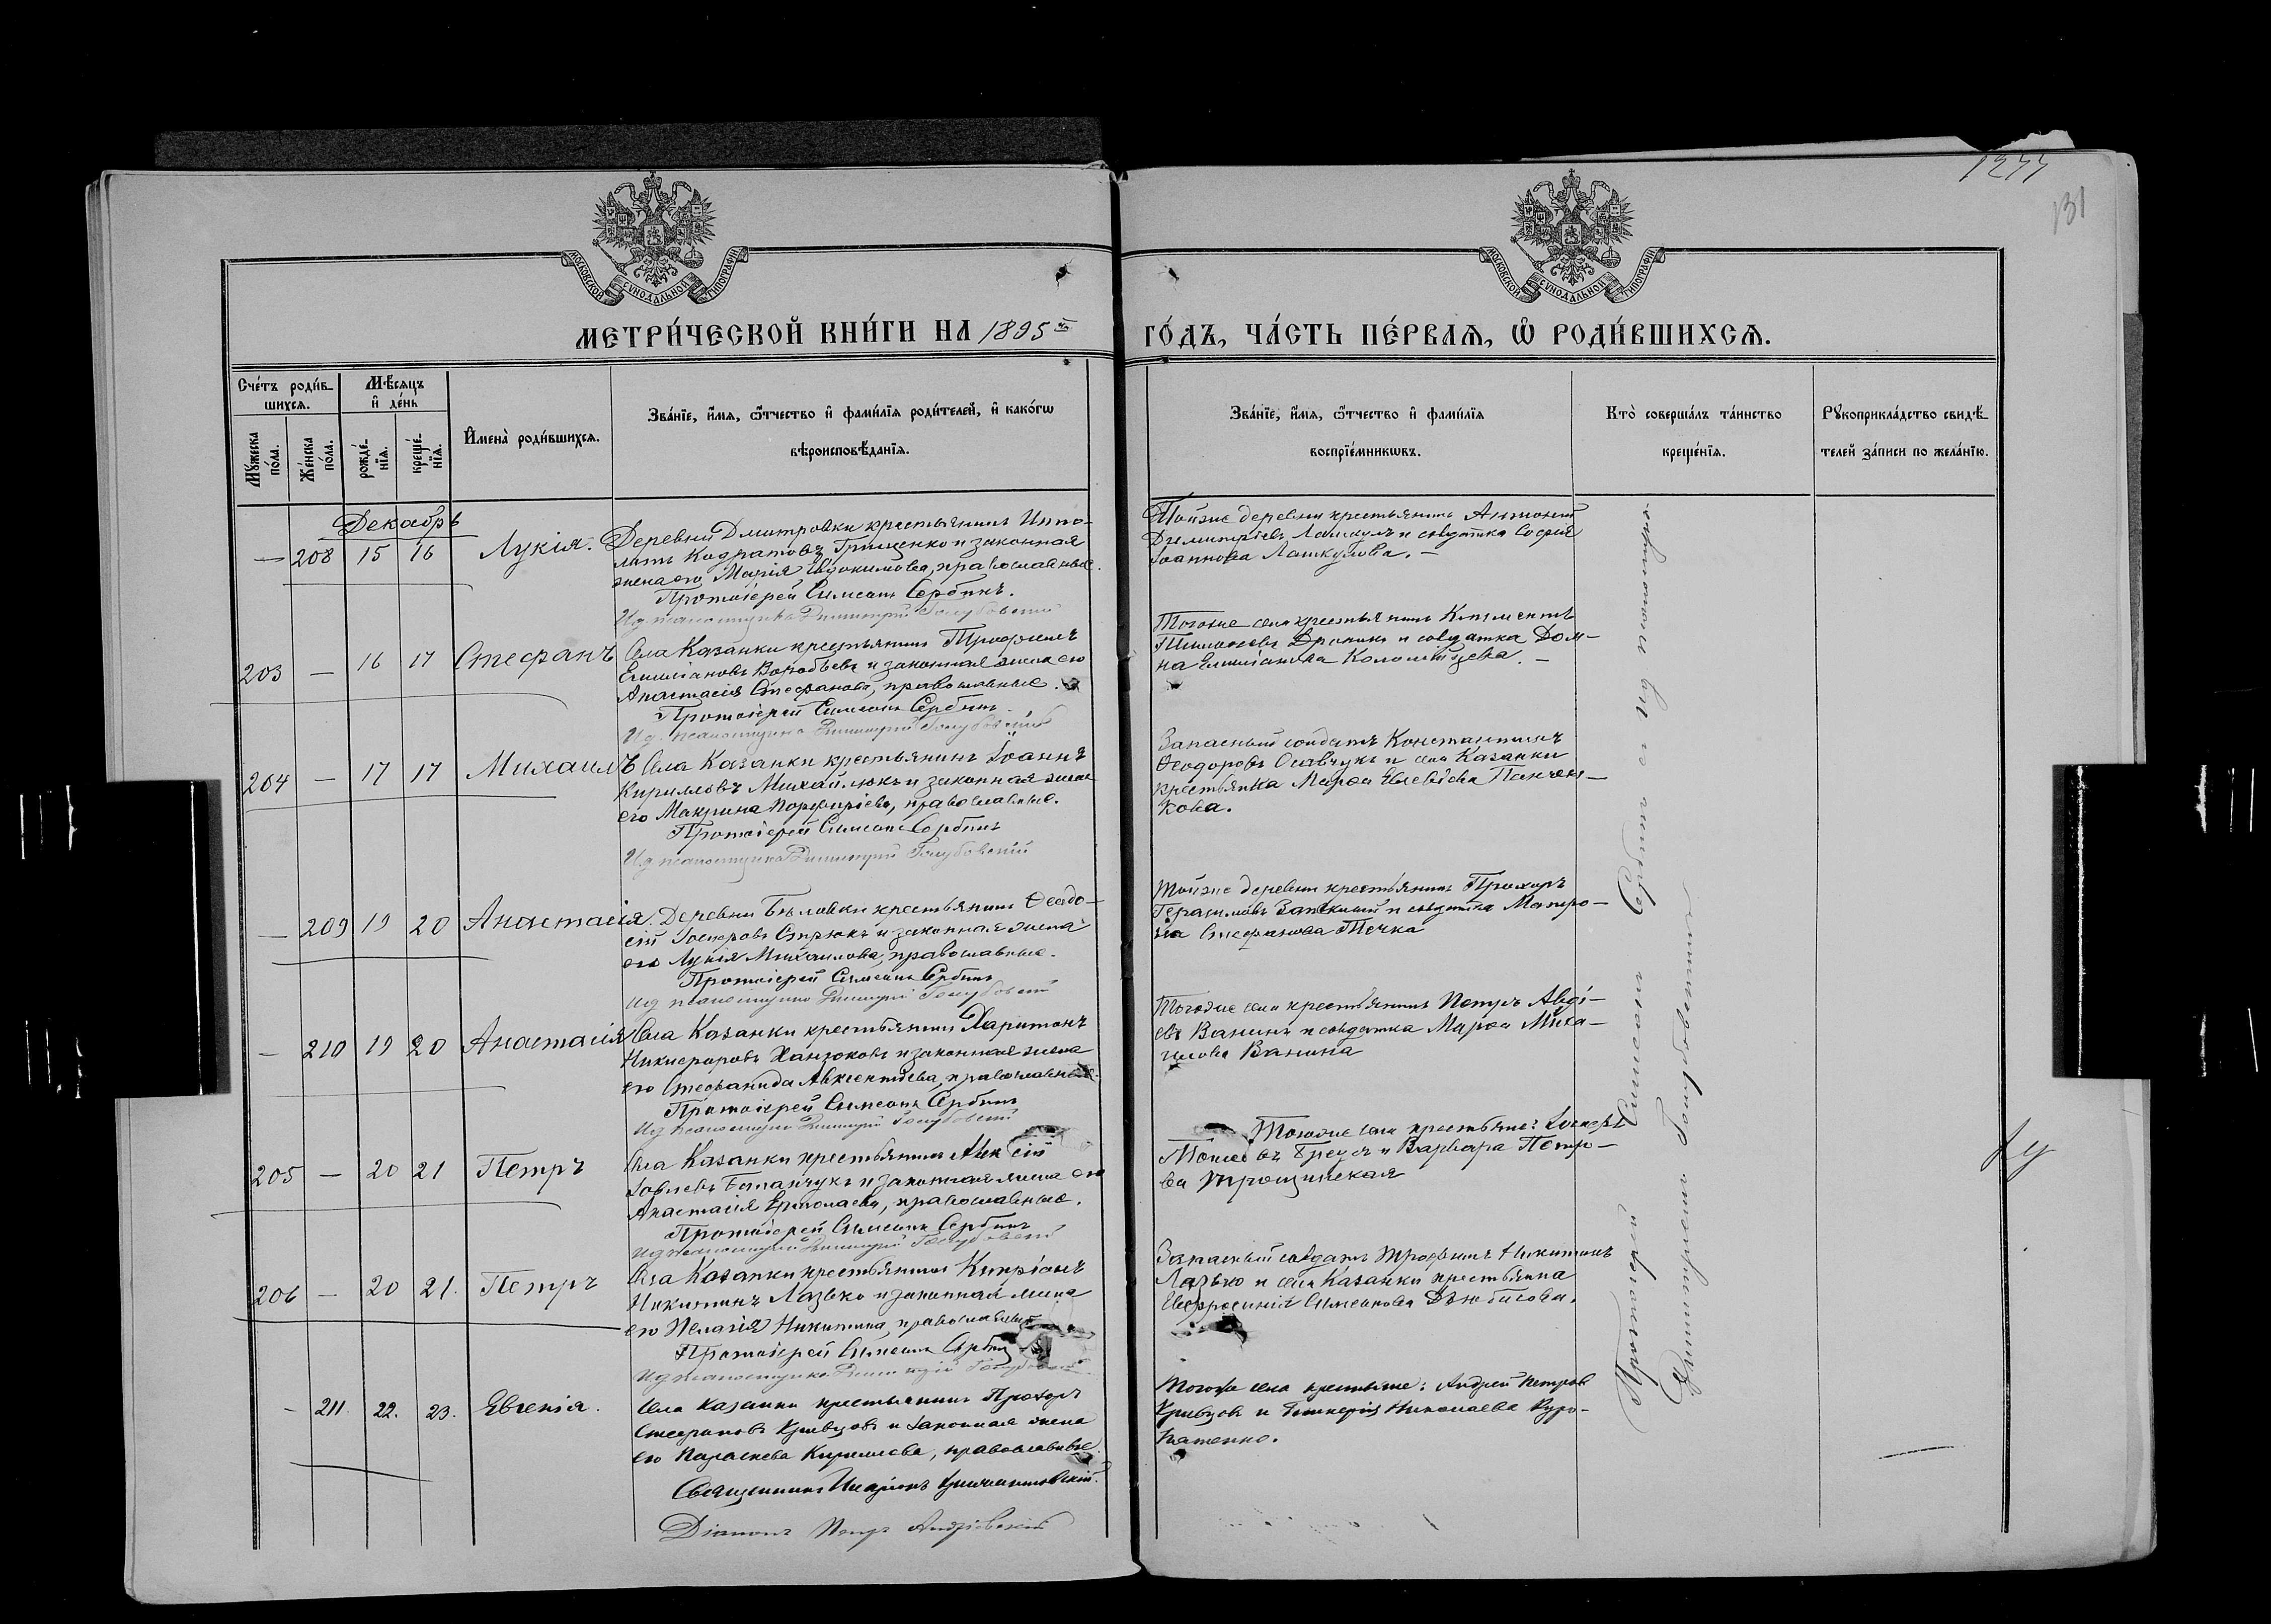 1244
131
МОСКОВСКОЙ СѴНОДАЛЬНОЙ ТИПОГРАФІИ
МОСКОВСКОЙ СѴНОДАЛЬНОЙ ТИПОГРАФІИ
МЕТРИ́ЧЕСКОЙ КНИ́ГИ НА 1895й
ГО́ДЪ, ЧА́СТЬ ПЕ́РВАѦ, Ѽ РОДИ́ВШИХСѦ.
Сче́тъ роди́в-
шихсѧ.
Мѣ́сѧцъ
и҆ де́нь
Мꙋ́жеска по́ла.
Же́нска по́ла.
рожде́-
нїѧ.
креще́-
нїѧ.
И҆мена̀ роди́вшихсѧ.
Зва́нїе, и҆́мѧ, ѻ҆́тчество и҆ фами́лїѧ роди́телей, и҆ како́гѡ
вѣроисповѣ́данїѧ.
Зва́нїе, и҆́мѧ, ѻ҆́тчество и҆ фами́лїѧ
воспрїе́мникѡвъ.
Кто̀ соверша́лъ та́инство
креще́нїѧ.
Рꙋкоприкла́дство свидѣ́-
телей за́писи по жела́нїю.
Декабрь
— 208 15 16 Лукія.
Деревни Дмитровки крестьянинъ Иппо-
литъ Кодратовъ Грищенко и законная
жена его Марія Евдокимова, православные.
Протоіерей Симеонъ Сербинъ.
И д псаломщика Димитрій Голубовскій
Тойже деревни крестьянинъ Антоній
Димитріевъ Лашкулъ и солдатка Софія
Іоаннова Лашкулова. —
203 — 16 17 Стефанъ
Села Казанки крестьянинъ Трофимъ
Емиліановъ Воробьевъ и законная жена его
Анастасія Стефанова, православные.
Протоіерей Симеонъ Сербинъ
И д псаломщика Димитрій Голубовскій
Тогоже села крестьянинъ Климентъ
и солдатка Дом-
на Емиліанова Коломійцева. —
204 — 17 17 Михаилъ
Села Казанки крестьянинъ Іоаннъ
Кирилловъ Михайлюкъ и законная жена
его Макрина Порфиріева, православные.
Протоіерей Симеонъ Сербинъ
И д псаломщика Димитрій Голубовскій
Запасный солдатъ Константинъ
Ѳеодоровъ Савчукъ и села Казанки
крестьянка Марѳа
кова.
— 209 19 20 Анастасія.
Деревни Бѣловки крестьянинъ Ѳеодо-
сій Іосифовъ Стрюкъ и законная жена
его Лукія Михаилова, православные.
Протоіерей Симеонъ Сербинъ
И д псаломщика Димитрій Голубовскій
Тойже деревни крестьянинъ Прохоръ
Герасимовъ и солдатка Матро-
на Стефанова Течка
— 210 19 20 Анастасія
Села Казанки крестьянинъ Харитонъ
Никифоровъ Ханжоковъ и законная жена
его Стефанида Авксентіева, православные.
Протоіерей Симеонъ Сербинъ
И д псаломщика Димитрій Голубовскій
Тогоже села крестьянинъ Петръ Авді-
евъ Ванинъ и солдатка Марѳа Миха-
илова Ванина
205 — 20 21 Петръ
Села Казанки крестьянинъ Алексій
Іовлевъ и законная жена его
Анастасія Ермолаева, православные.
Протоіерей Симеонъ Сербинъ
И д псаломщика Димитрій Голубовскій
Тогоже села крестьяне: Іосифъ
и Варвара Петро-
ва Трощинская
206 — 20 21. Петръ
Села Казанки крестьянинъ Кипріанъ
Никитинъ Лазько и законная жена
его Пелагія Никитина, православные
Протоіерей Симеонъ Сербинъ
И д псаломщика Димитрій Голубовскій
Запасный солдатъ Трофимъ Никитинъ
Лазько и села Казанки крестьянка
Евфросинія Симеонова
— 211. 22. 23. Евгенія.
Села Казанки крестьянинъ Прохоръ
Стефановъ Кривцовъ и законная жена
его Параскева Кириллова, православные.
Священникъ Иларіонъ
Діаконъ Петръ Андріевскій
Тогоже села крестьяне: Андрей Петровъ
Кривцовъ и Гликерія Николаева Куро-
патенко.
Протоіерей Симеонъ Сербинъ с и д псаломщи-
Димитріемъ Голубовскимъ